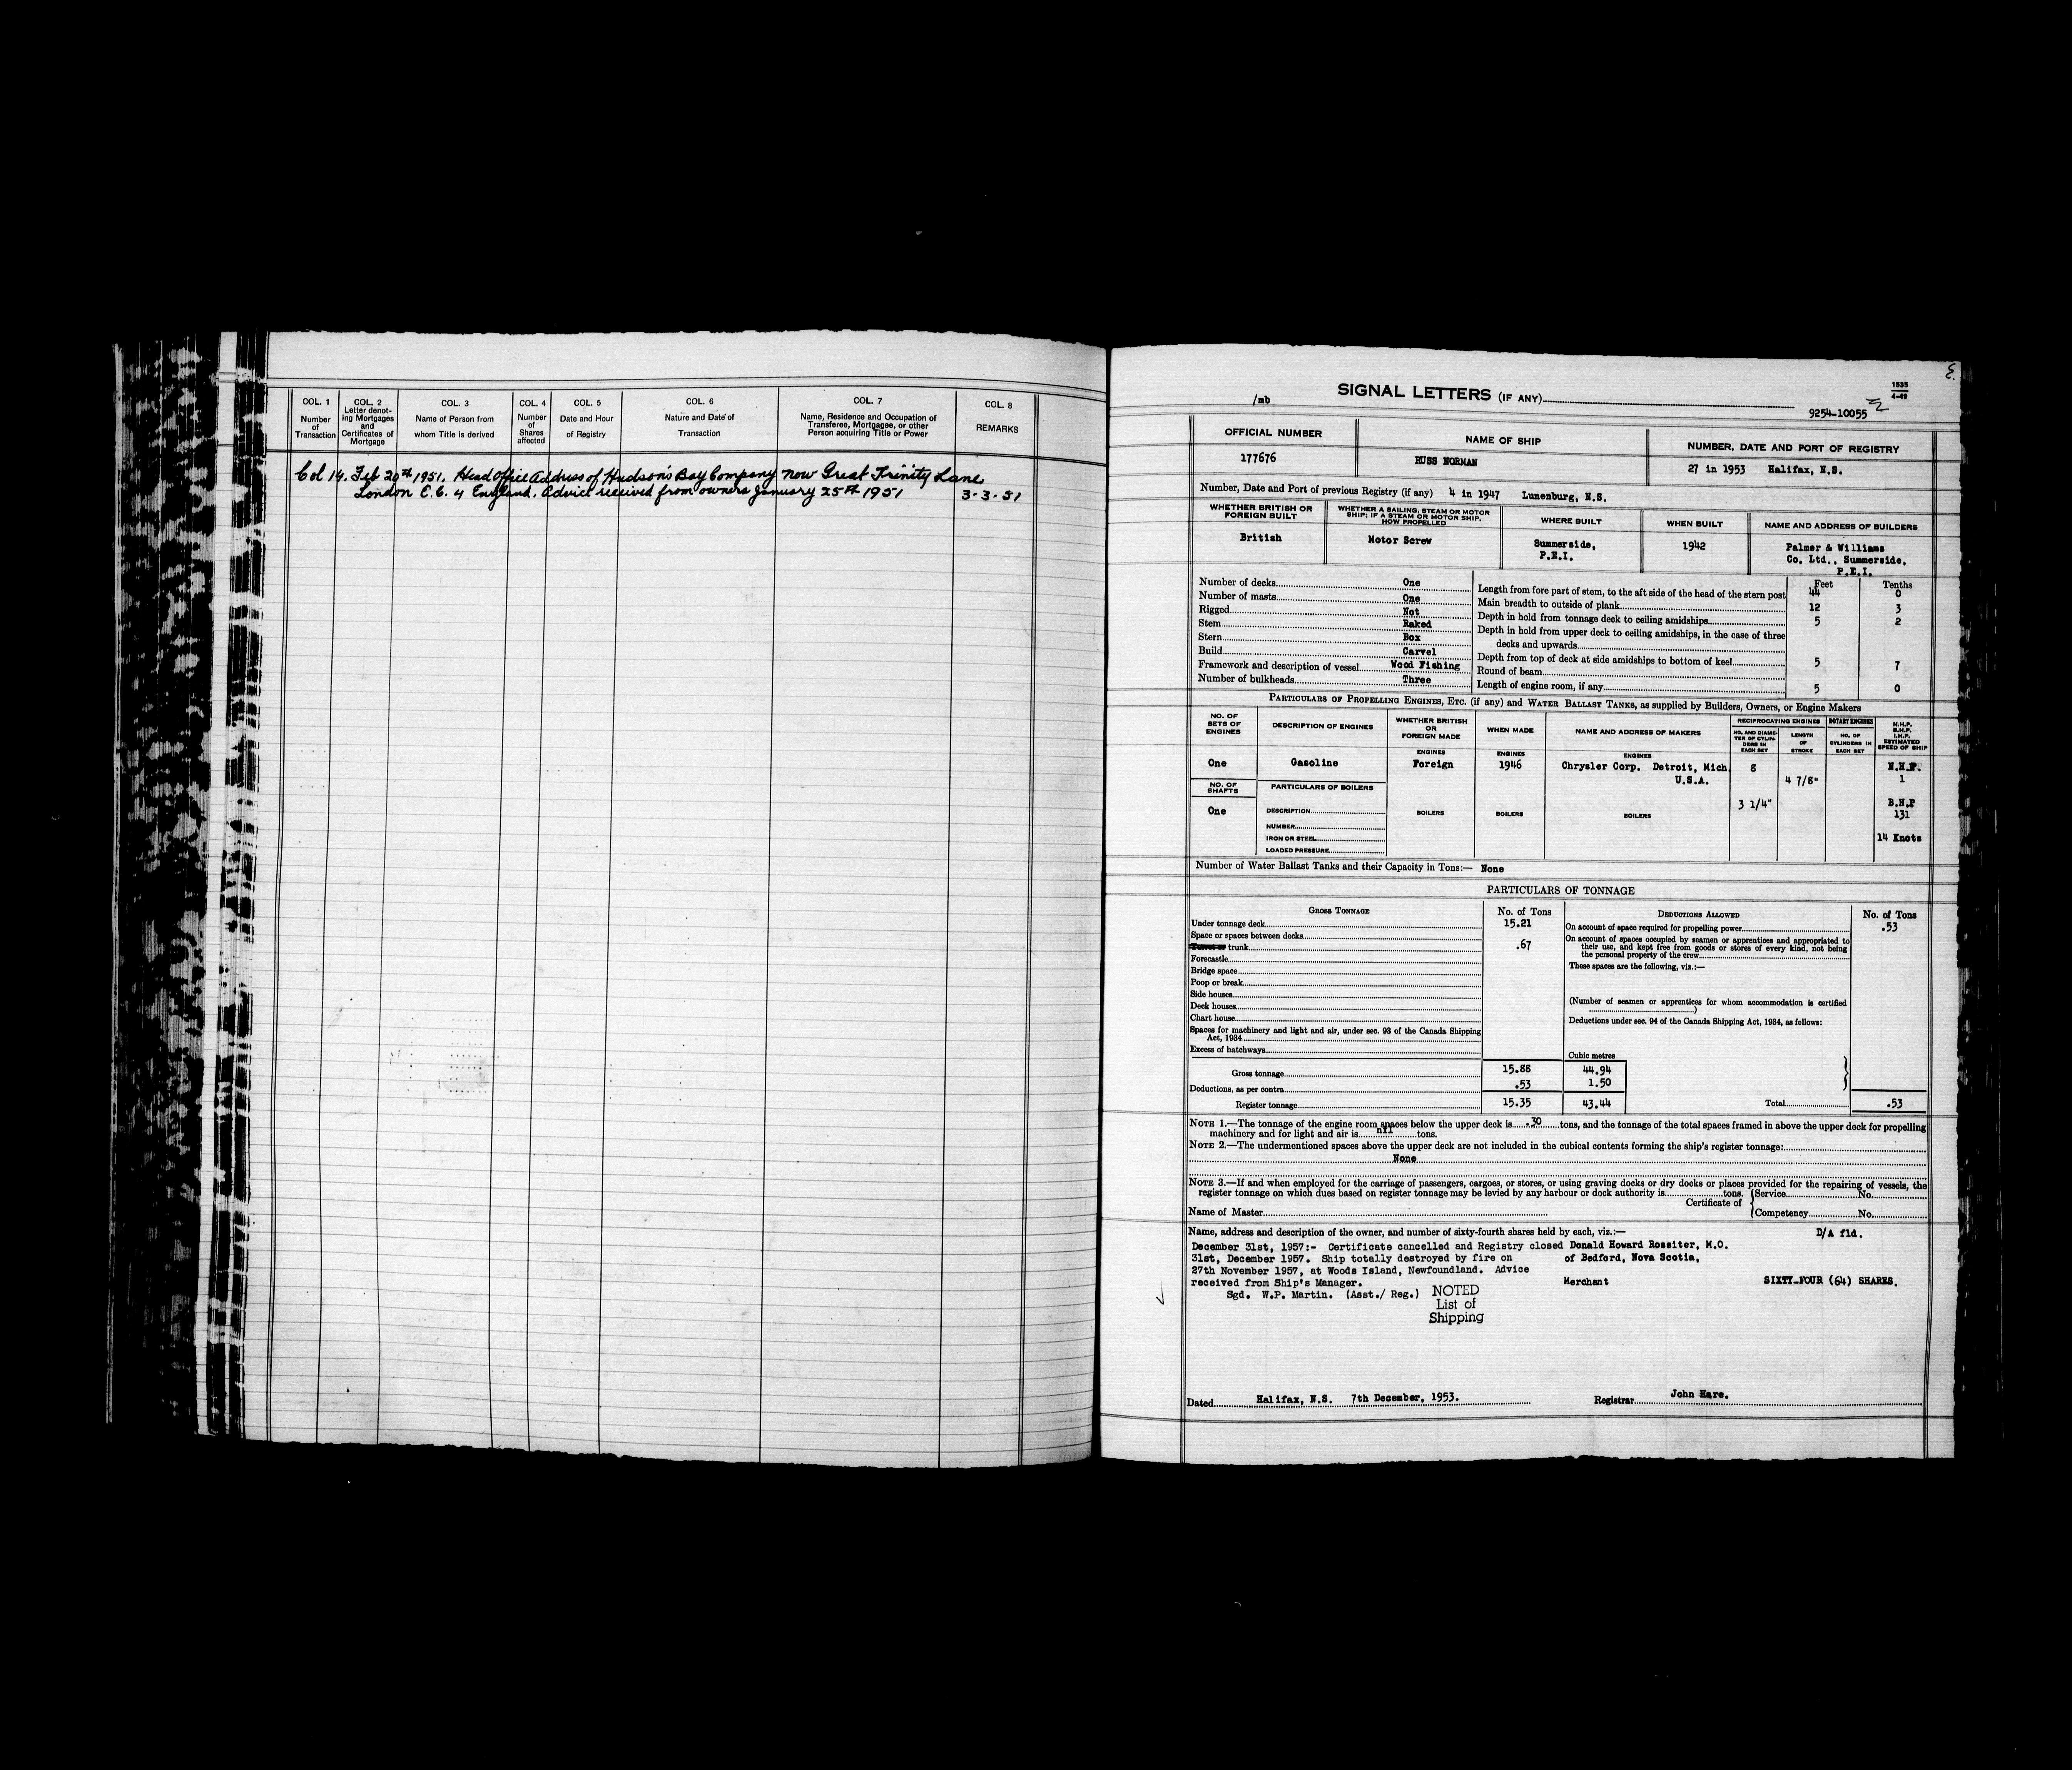 COL. 1
Number
of
Transaction
COL. 2
Letter denot-
ing Mortgages
and
Certificates of
Mortgage
COL. 3
Name of Person from
whom Title is derived
COL. 4
Number
of
Shares
affected
COL. 5
Date and Hour
of Registry
COL. 6
Nature and Date of
Transaction
COL. 7
Name, Residence and Occupation of
Transferee, Mortgagee, or other
Person acquiring Title or Power
COL. 8
REMARKS
Col 14. Feb 20th 1951. Head Office Address of Hudson's Bay Company now Great Trinity Lane
London E.C. 4 England. Advice received from owners January 25th 1951 3-3-51
1535
4-49
/mb SIGNAL LETTERS (IF ANY)
9254-10055
OFFICIAL NUMBER NAME OF SHIP NUMBER, DATE AND PORT OF REGISTRY
177676 RUSS NORMAN 27 in 1953 Halifax, N.S.
Number, Date and Port of previous Registry (if any) 4 in 1947 Lunenburg, N.S.
WHETHER BRITISH OR
FOREIGN BUILT
WHETHER A SAILING, STEAM OR MOTOR
SHIP; IF A STEAM OR MOTOR SHIP,
HOW PROPELLED
WHERE BUILT
WHEN BUILT
NAME AND ADDRESS OF BUILDERS
British
Motor Screw
Summerside,
P.E.I.
1942
Palmer & Williams
Co. Ltd., Summerside,
P.E.I.
Number of decks One
Number of masts One
Rigged Not
Stem Raked
Stern Box
Build Carvel
Framework and description of vessel Wood Fishing
Number of bulkheads Three
Feet Tenths
Length from fore part of stem, to the aft side of the head of the stern post 44 0
Main breadth to outside of plank 12 3
Depth in hold from tonnage deck to ceiling amidships 5 2
Depth in hold from upper deck to ceiling amidships, in the case of three
decks and upwards
Depth from top of deck at side amidships to bottom of keel 5 7
Round of beam
Length of engine room, if any 5 0
PARTICULARS OF PROPELLING ENGINES, ETC. (if any) and WATER BALLAST TANKS, as supplied by Builders, Owners, or Engine Makers
NO. OF
SETS OF
ENGINES
DESCRIPTION OF ENGINES
WHETHER BRITISH
OR
FOREIGN MADE
WHEN MADE
NAME AND ADDRESS OF MAKERS
RECIPROCATING ENGINES
NO. AND DIAME-
TER OF CYLIN-
DERS IN
EACH SET
LENGTH
OF
STROKE
ROTARY ENGINES
NO. OF
CYLINDERS IN
EACH SET
N.H.P.
B.H.P.
I.H.P.
ESTIMATED
SPEED OF SHIP
ENGINES ENGINES ENGINES
One Gasoline Foreign 1946 Chrysler Corp. Detroit, Mich. 8 N.H.P.
U.S.A. 4 7/8" 1
NO. OF
SHAFTS
PARTICULARS OF BOILERS
3 1/4" B.H.P
One DESCRIPTION BOILERS BOILERS BOILERS 131
NUMBER
IRON OR STEEL 14 Knots
LOADED PRESSURE
Number of Water Ballast Tanks and their Capacity in Tons:— None
PARTICULARS OF TONNAGE
GROSS TONNAGE No. of Tons
Under tonnage deck 15.21
Space or spaces between decks
trunk .67
Forecastle
Bridge space
Poop or break
Side houses
Deck houses
Chart house
Spaces for machinery and light and air, under sec. 93 of the Canada Shipping
Act, 1934
Excess of hatchways
Cubic metres
Gross tonnage 15.88 44.94
Deductions, as per contra .53 1.50
Register tonnage 15.35 43.44
DEDUCTIONS ALLOWED No. of Tons
On account of space required for propelling power .53
On account of spaces occupied by seamen or apprentices and appropriated to
their use, and kept free from goods or stores of every kind, not being
the personal property of the crew
These spaces are the following, viz.:—
(Number of seamen or apprentices for whom accommodation is certified
)
Deductions under sec. 94 of the Canada Shipping Act, 1934, as follows:
Total .53
NOTE 1.—The tonnage of the engine room spaces below the upper deck is .30 tons, and the tonnage of the total spaces framed in above the upper deck for propelling
machinery and for light and air is nil tons.
NOTE 2.—The undermentioned spaces above the upper deck are not included in the cubical contents forming the ship's register tonnage:
None
NOTE 3.—If and when employed for the carriage of passengers, cargoes, or stores, or using graving docks or dry docks or places provided for the repairing of vessels, the
register tonnage on which dues based on register tonnage may be levied by any harbour or dock authority is tons.
Certificate of
Service No.
Competency No.
Name of Master
Name, address and description of the owner, and number of sixty-fourth shares held by each, viz.:— D/A fld.
December 31st, 1957:- Certificate cancelled and Registry closed
31st, December 1957. Ship totally destroyed by fire on
27th November 1957, at Woods Island, Newfoundland. Advice
received from Ship's Manager.
Sgd. W.P. Martin. (Asst./ Reg.)
NOTED
List of
Shipping
Donald Howard Rossiter, M.O.
of Bedford, Nova Scotia,
Merchant SIXTY-FOUR (64) SHARES.
Dated Halifax, N.S. 7th December, 1953. Registrar John Hare.